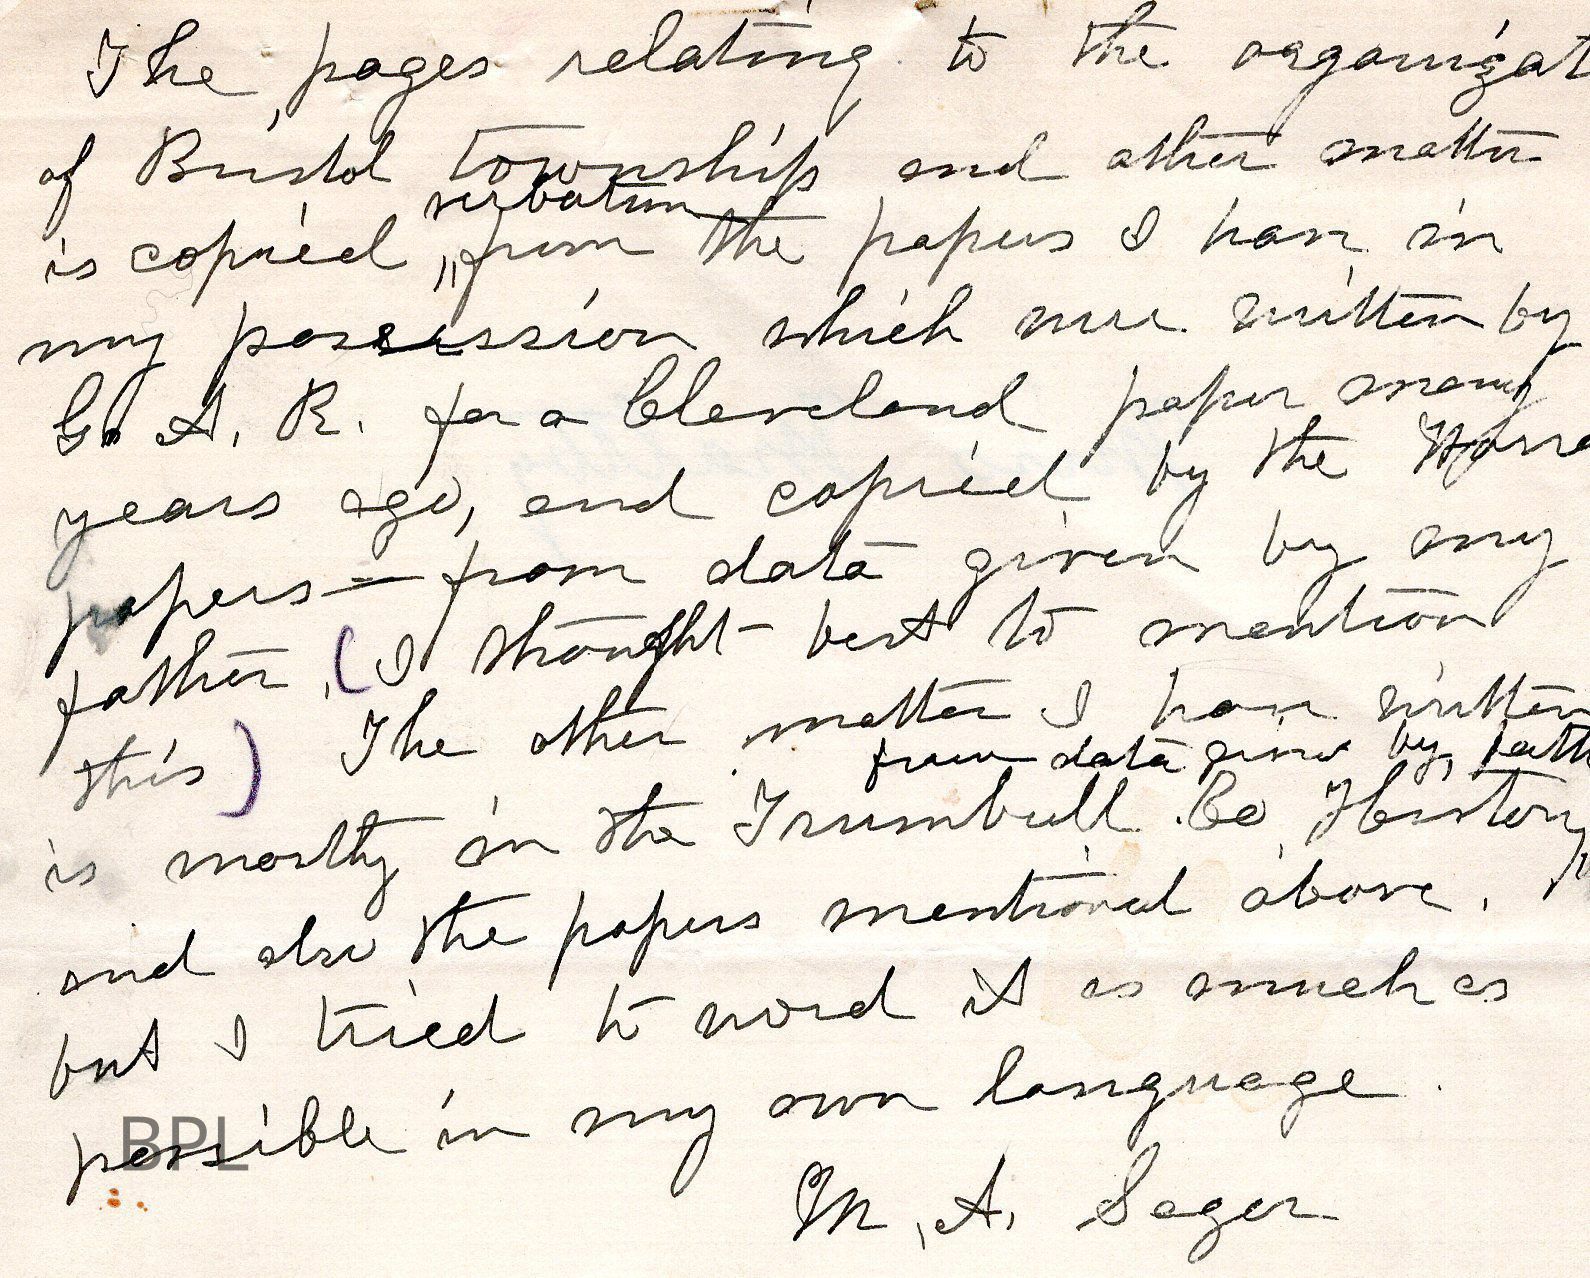 The pages relating to the organizat
of Bristol township and other matter
verbatim
is copied " from the papers I have in
my possession which were written by
G. A. R. for a Cleveland paper many
years ago, and copied by the Warre
papers — from data given by my
father, (I thought best to mention
this) The other matter I have written
from data given by fath
is mostly in the Trumbull Co History,
and also the papers mentioned above.
but I tried to word it as much as
possible in my own language.
BPL
M. A. Sager